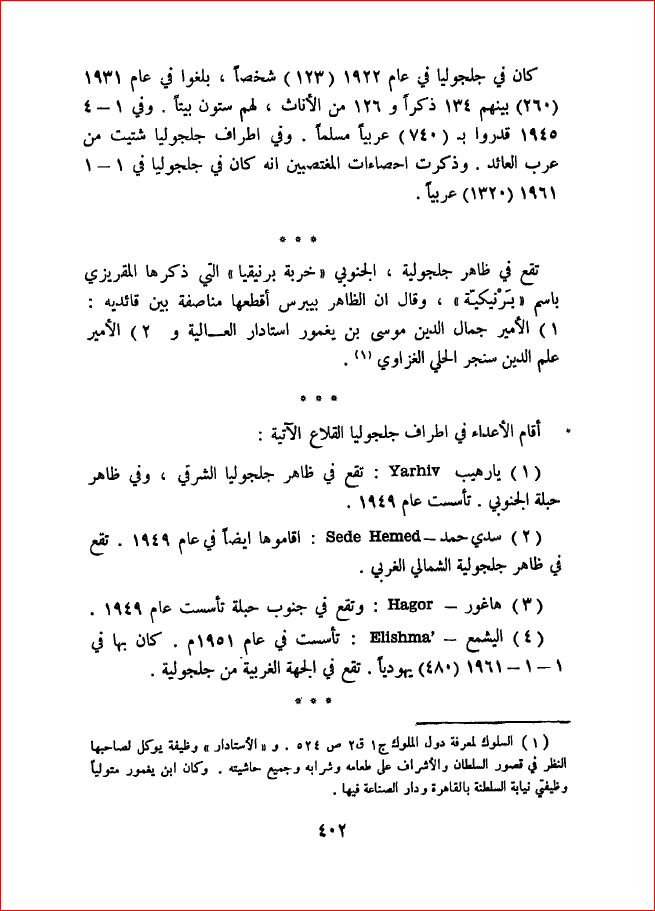 كان في جلجوليا في عام ١٩٢٢ (١٢٣) شخصاً ، بلغوا في عام ١٩٣١
(٢٦٠) بينهم ١٣٤ ذكراً و ١٢٦ من الأناث ، لهم ستون بيتاً . وفي ١ – ٤
١٩٤٥ قدروا بـ (٧٤٠) عربياً مسلماً . وفي اطراف جلجوليا شتيت من
عرب العائد . وذكرت احصاءات المغتصبين انه كان في جلجوليا في ١ – ١
١٩٦١ (١٣٢٠) عربياً .
* * *
تقع في ظاهر جلجولية ، الجنوبي « خربة برنيقيا » التي ذكرها المقريزي
باسم « بَرْنيكيّة » ، وقال ان الظاهر بيبرس أقطعها مناصفة بين قائديه :
١) الأمير جمال الدين موسى بن يغمور استادار العـــالية و ٢) الأمير
علم الدين سنجر الحلي الغزاوي (١) .
* * *
أقام الأعداء في اطراف جلجوليا القلاع الآتية :
(١) يارهيب Yarhiv : تقع في ظاهر جلجوليا الشرقي ، وفي ظاهر
حبلة الجنوبي . تأسست عام ١٩٤٩ .
(٢) سدي حمد – Sede Hemed : اقاموها ايضاً في عام ١٩٤٩ . تقع
في ظاهر جلجولية الشمالي الغربي .
(٣) هاغور – Hagor : وتقع في جنوب حبلة تأسست عام ١٩٤٩ .
(٤) اليشمع – Elishma' : تأسست في عام ١٩٥١م . كان بها في
١ – ١ – ١٩٦١ (٤٨٠) يهودياً . تقع في الجهة الغربية من جلجولية .
* * *
(١) السلوك لمعرفة دول الملوك ج١ ق٢ ص ٥٢٤ . و « الأستادار » وظيفة يوكل لصاحبها
النظر في قصور السلطان والأشراف على طعامه وشرابه وجميع حاشيته . وكان ابن يغمور متولياً
وظيفتي نيابة السلطنة بالقاهرة ودار الصناعة فيها .
٤٠٢